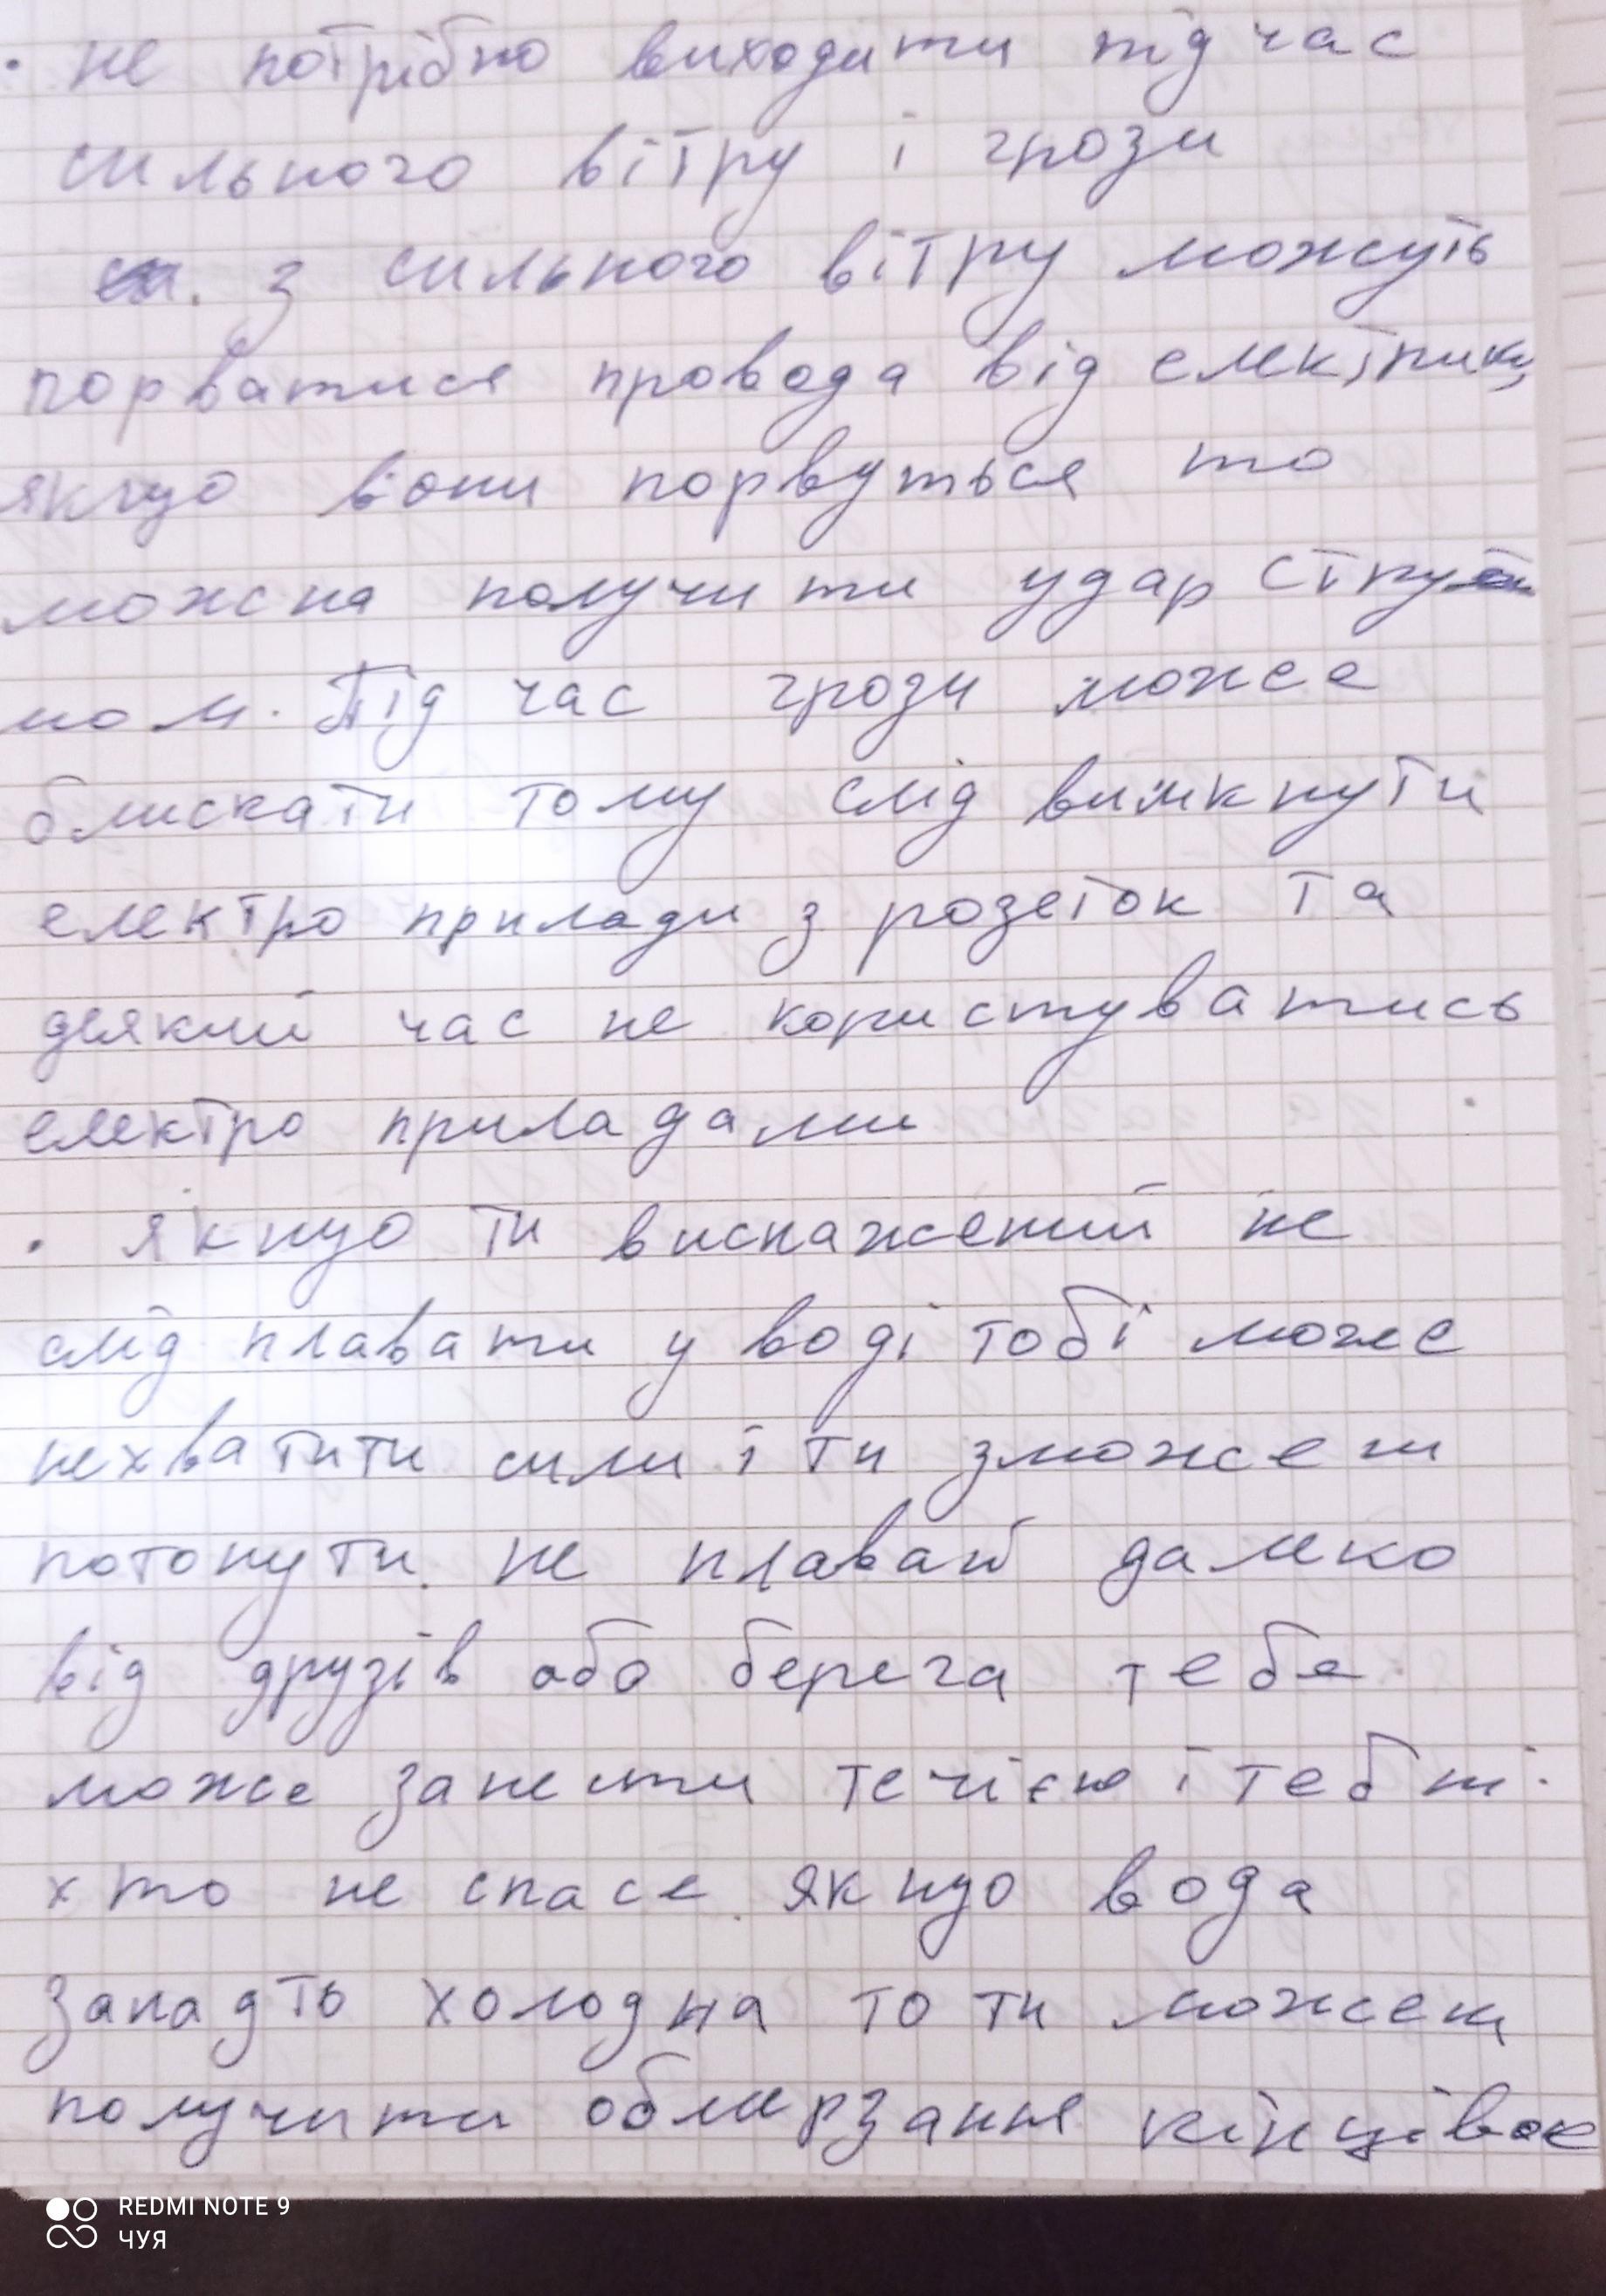 • не потрібно виходити під час
сильного вітру і грози
з сильного вітру можуть
порватися провода від електрики,
якщо вони порвуться то
можна получити удар стру
мом. Під час грози може
блискати тому слід вимкнути
електро прилади з розеток та
деякий час не користуватись
електро приладами
• якщо ти виснажений не
слід плавати у воді тобі може
нехватити сили і ти зможеш
потонути. не плавай далеко
від друзів або берега тебе
може занести течією і тебе ні-
хто не спасе. якщо вода
занадть холодна то ти можеш
получити обмерзання кінцівок
REDMI NOTE 9
ЧУЯ